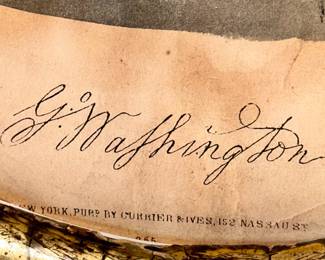 G. Washington
YORK, PUBD BY CURRIER & IVES, 152 NASSAU ST